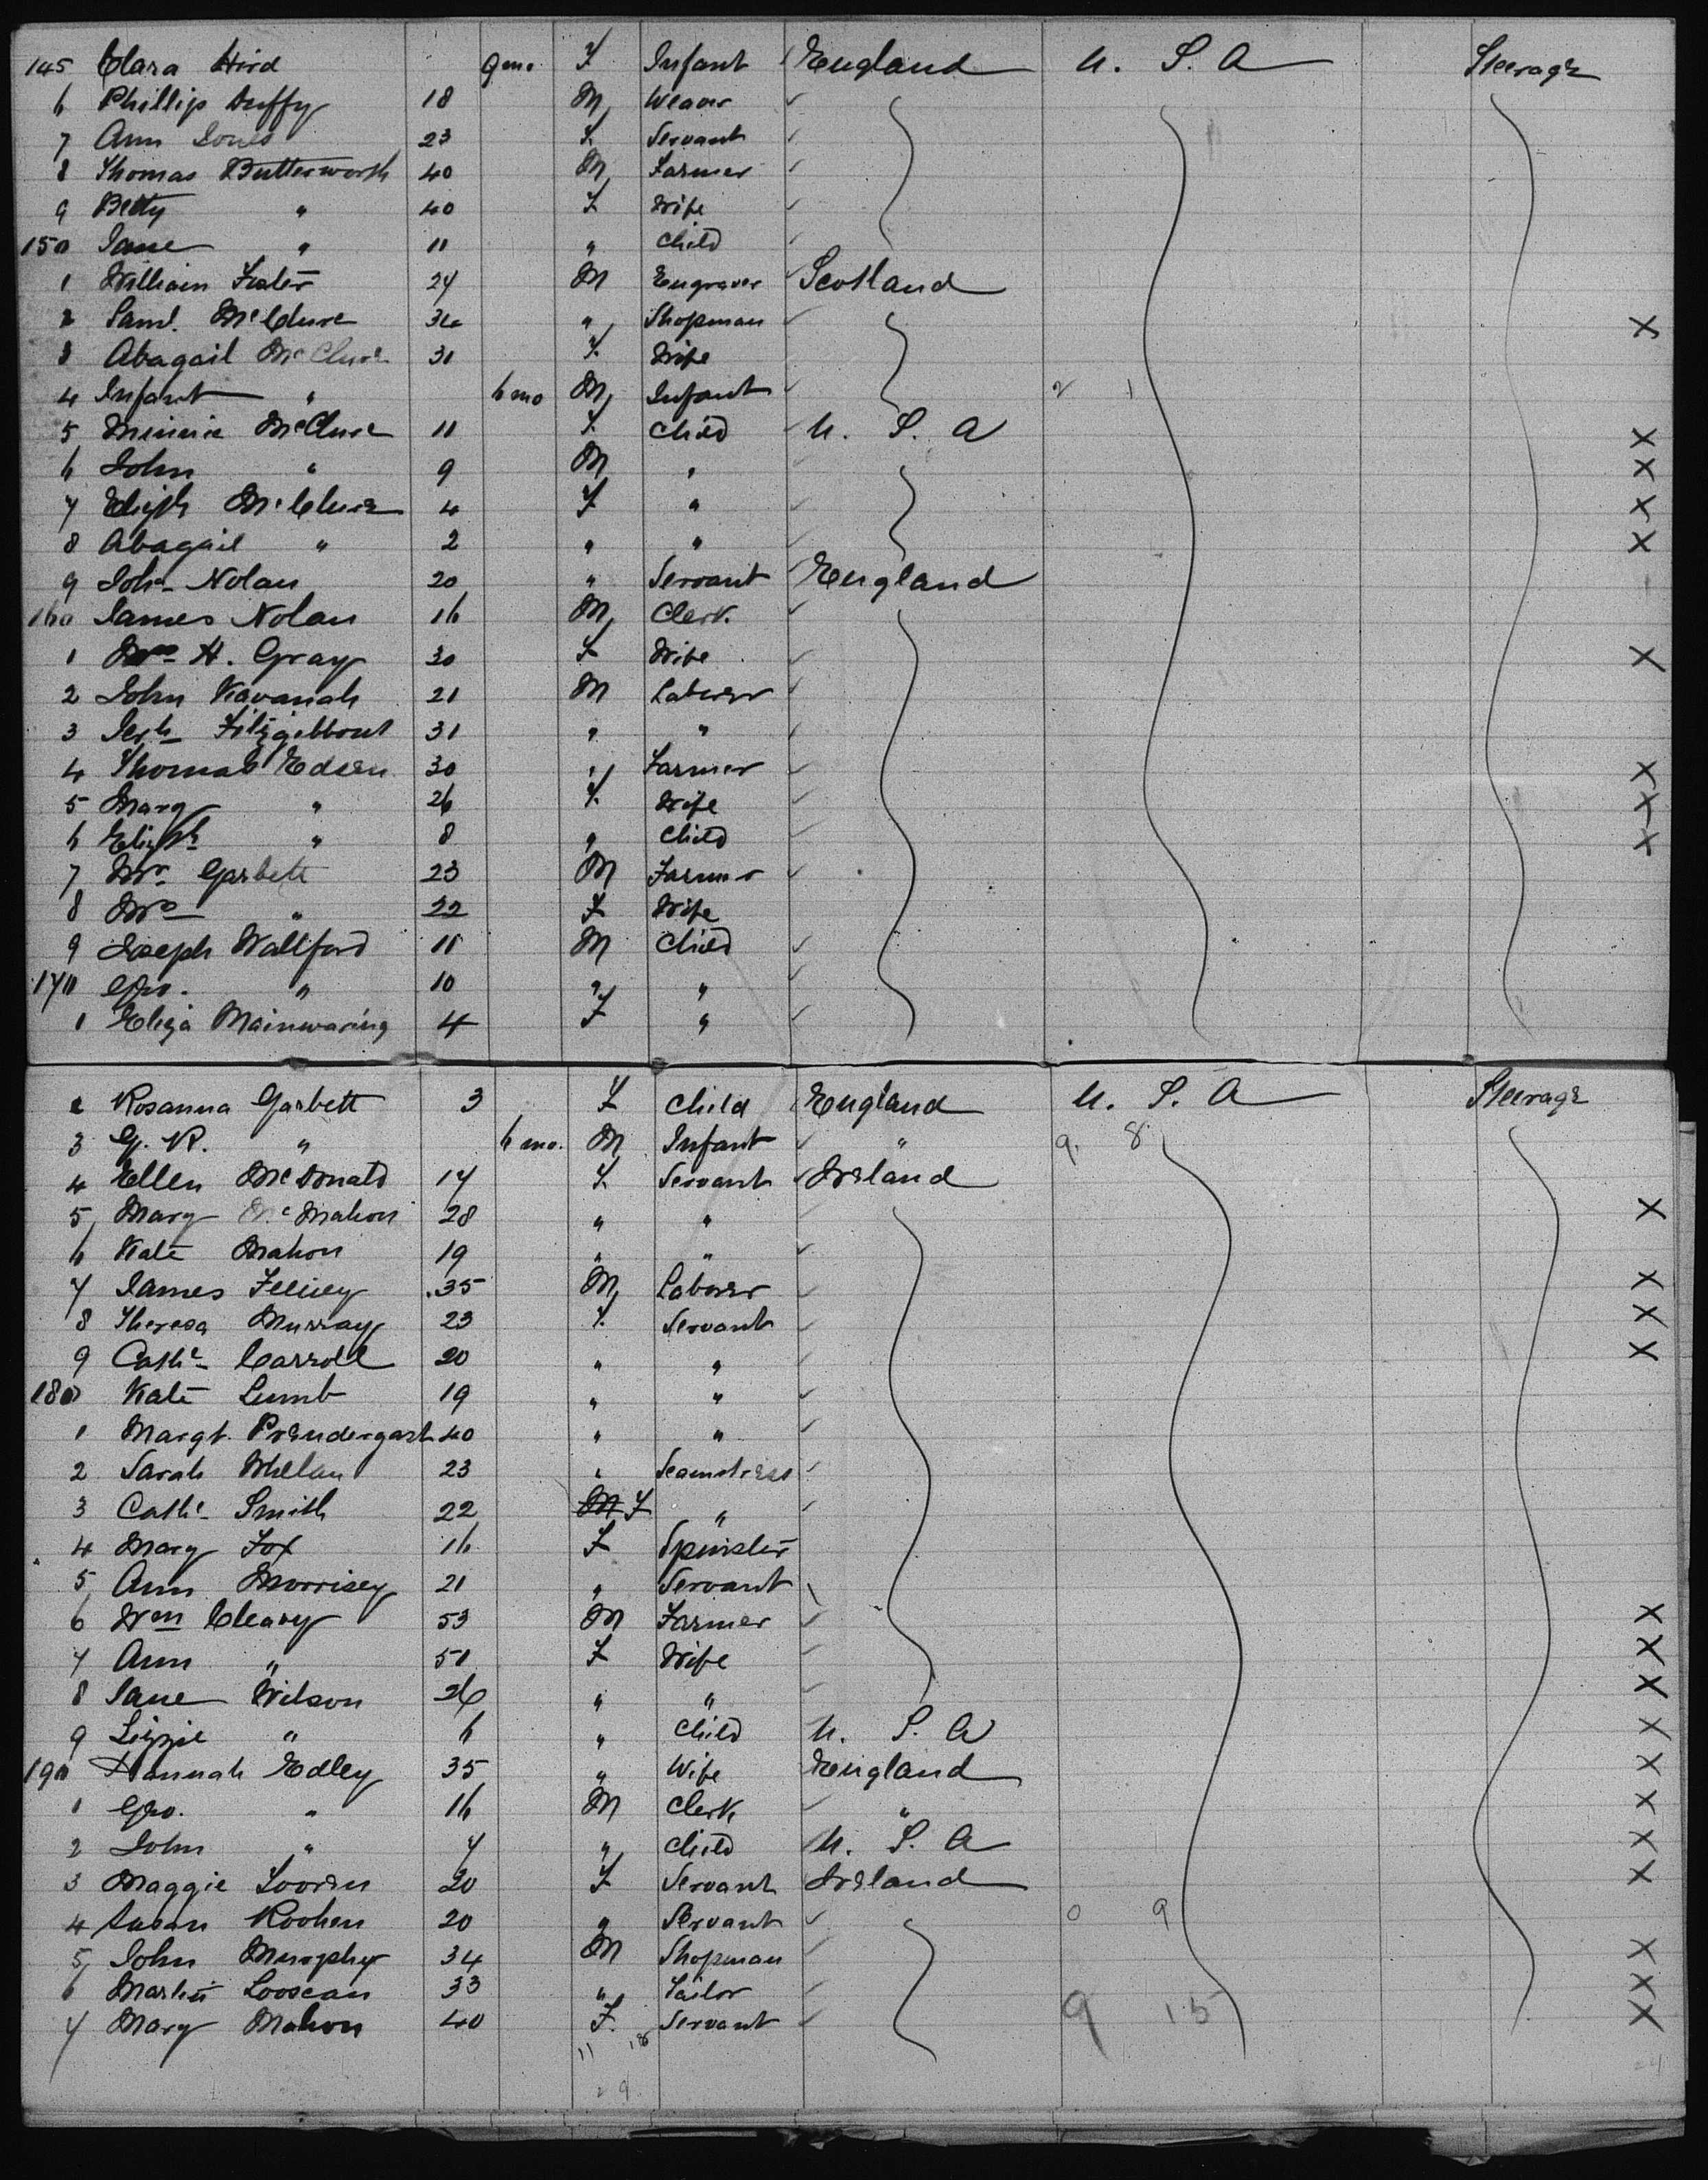 145 Clara Hird 9 mo. F Infant England U. S. A Steerage
6 Phillip Duffy 18 M Weaver
7 Ann Jones 23 F Servant
8 Thomas Butterworth 40 M Farmer
9 Betty " 40 F Wife
150 Jane " 11 " Child
1 William Foster 24 M Engraver Scotland
2 Saml. McClure 34 " Shopman X
3 Abagail McClure 31 F Wife
4 Infant " 6 mo M Infant 2 1
5 Minnie McClure 11 F Child U. S. A X
6 John " 9 M " X
7 Elizth McClure 4 F " X
8 Abagail " 2 " " X
9 Nolan 20 " Servant England
160 James Nolan 16 M Clerk.
1 Mrs H. Gray 30 F Wife X
2 John Kavanah 21 M Laborer
3 Jerh Fitzgibbont 31 " "
4 Thomas Edsen 30 " Farmer X
5 Mary " 26 F Wife X
6 Elizth " 8 " Child X
7 Mr. Garbett 23 M Farmer
8 Mrs " 22 F Wife
9 Joseph Wallford 11 M Child
170 Geo. " 10 " "
1 Eliza Mainwaring 4 F "
2 Rosanna Garbett 3 F Child England U. S. A Steerage
3 G. R. " 6 mo. M Infant " 9. 8
4 Ellen McDonald 17 F Servant Ireland
5 Mary McMahon 28 " " X
6 Kate Mahon 19 " "
7 James 35 M Laborer X
8 Theresa Murray 23 F Servant X
9 Cathe Carroll 20 " " X
180 Kate Lumb 19 " "
1 Margt. Prendergast 40 " "
2 Sarah Whelan 23 " Seamstress
3 Cathe Smith 22 M F "
4 Mary Fox 16 F Spinster
5 Ann Morrisey 21 " Servant
6 Wm Cleary 53 M Farmer X
7 Ann " 51 F Wife X
8 Jane Wilson 26 " " X
9 Lizzie " 6 " Child U. S. A X
190 Hannah Edley 35 " Wife England X
1 Geo. " 16 M Clerk " X
2 John " 7 " Child U. S. A X
3 Maggie 20 F Servant Ireland X
4 Susan Roohen 20 " Servant 0 9
5 John Murphy 34 M Shopman X
6 Martin Looscan 33 " Tailor X
7 Mary Mahon 40 F. Servant 9 15 X
11 18
29